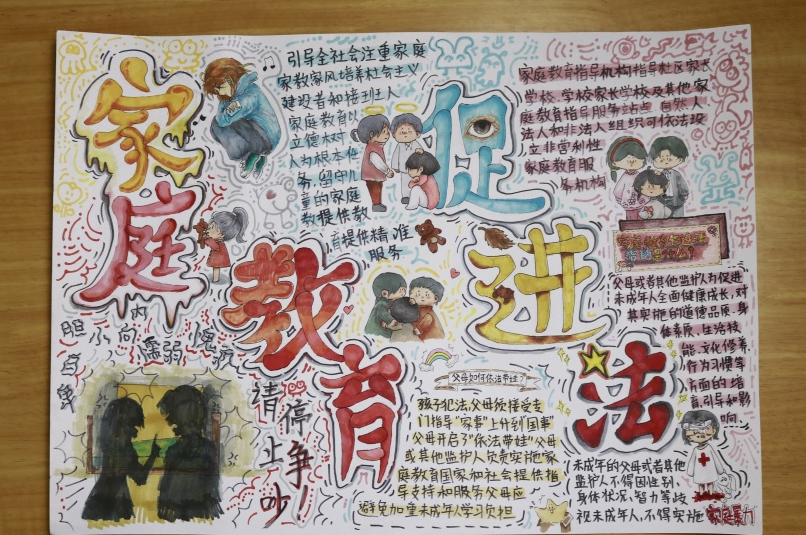 家庭教育促进法
引导全社会注重家庭
家教家风培养社会主义
建设者和接班人
家庭教育以
立德树
人为根本任
务,留守儿
童的家庭
教提供教
育提供精准
服务
家庭教育指导机构指导社区家长
学校、学校家长学校及其他家
庭教育指导服务站点 自然人
法人和非法人组织可依法设
立非营利性
家庭教育服
务机构
父母或者其他监护人为促进
未成年人全面健康成长,对
其实施的道德品质、身
体素质、生活技
能、文化修养、
行为习惯等
方面的培
育、引导和影
响.
胆小 内向 懦弱 愧疚
自卑
请停止争吵!
父母如何依法带娃?
孩子犯法,父母须接受专
门指导"家事"上升到"国事"
父母开启了"依法带娃"父母
或其他监护人负责实施家
庭教育国家和社会提供指
导支持和服务父母应
避免加重未成年学习负担
未成年的父母或者其他
监护人不得因性别、
身体状况、智力等歧
视未成年人,不得实施家庭暴力